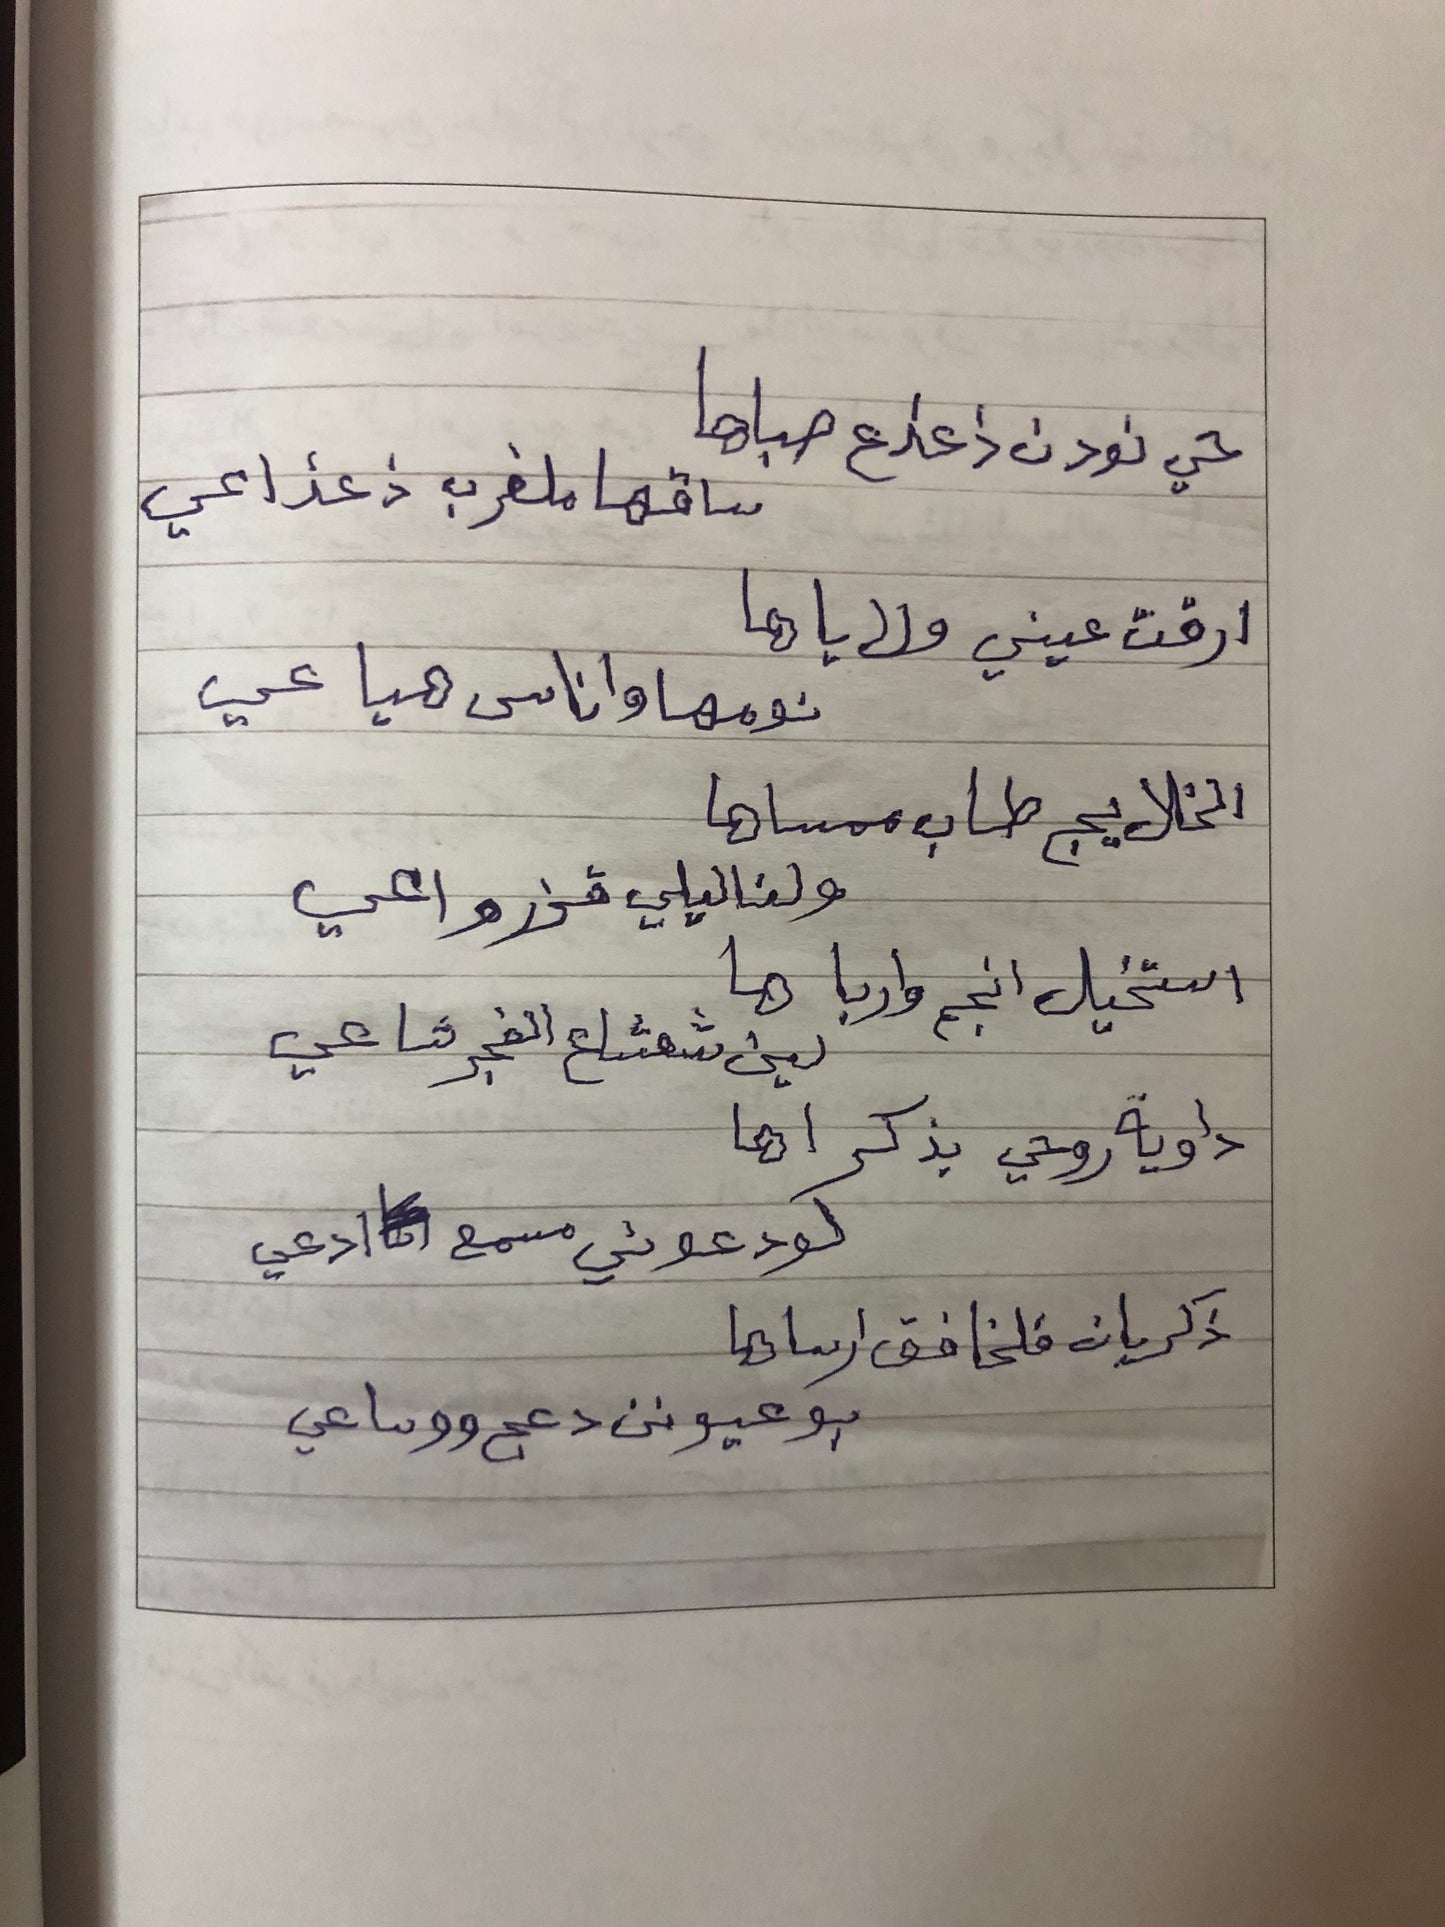 حي نودن ذعذع صباها
ساقها ملغرب ذعذاعي
ارقت عيني ولاياها
نومها واناس هياعي
الخلايج طاب ممساها
ولنا ليلي قزر واعي
استخيل انجم وارباها
لين شعشاع الفجر شاعي
داوية روحي بذكراها
لودعوني مسمع ادعي
ذكريانه فلخافق ارساها
بو عيونن دعج ووساعي